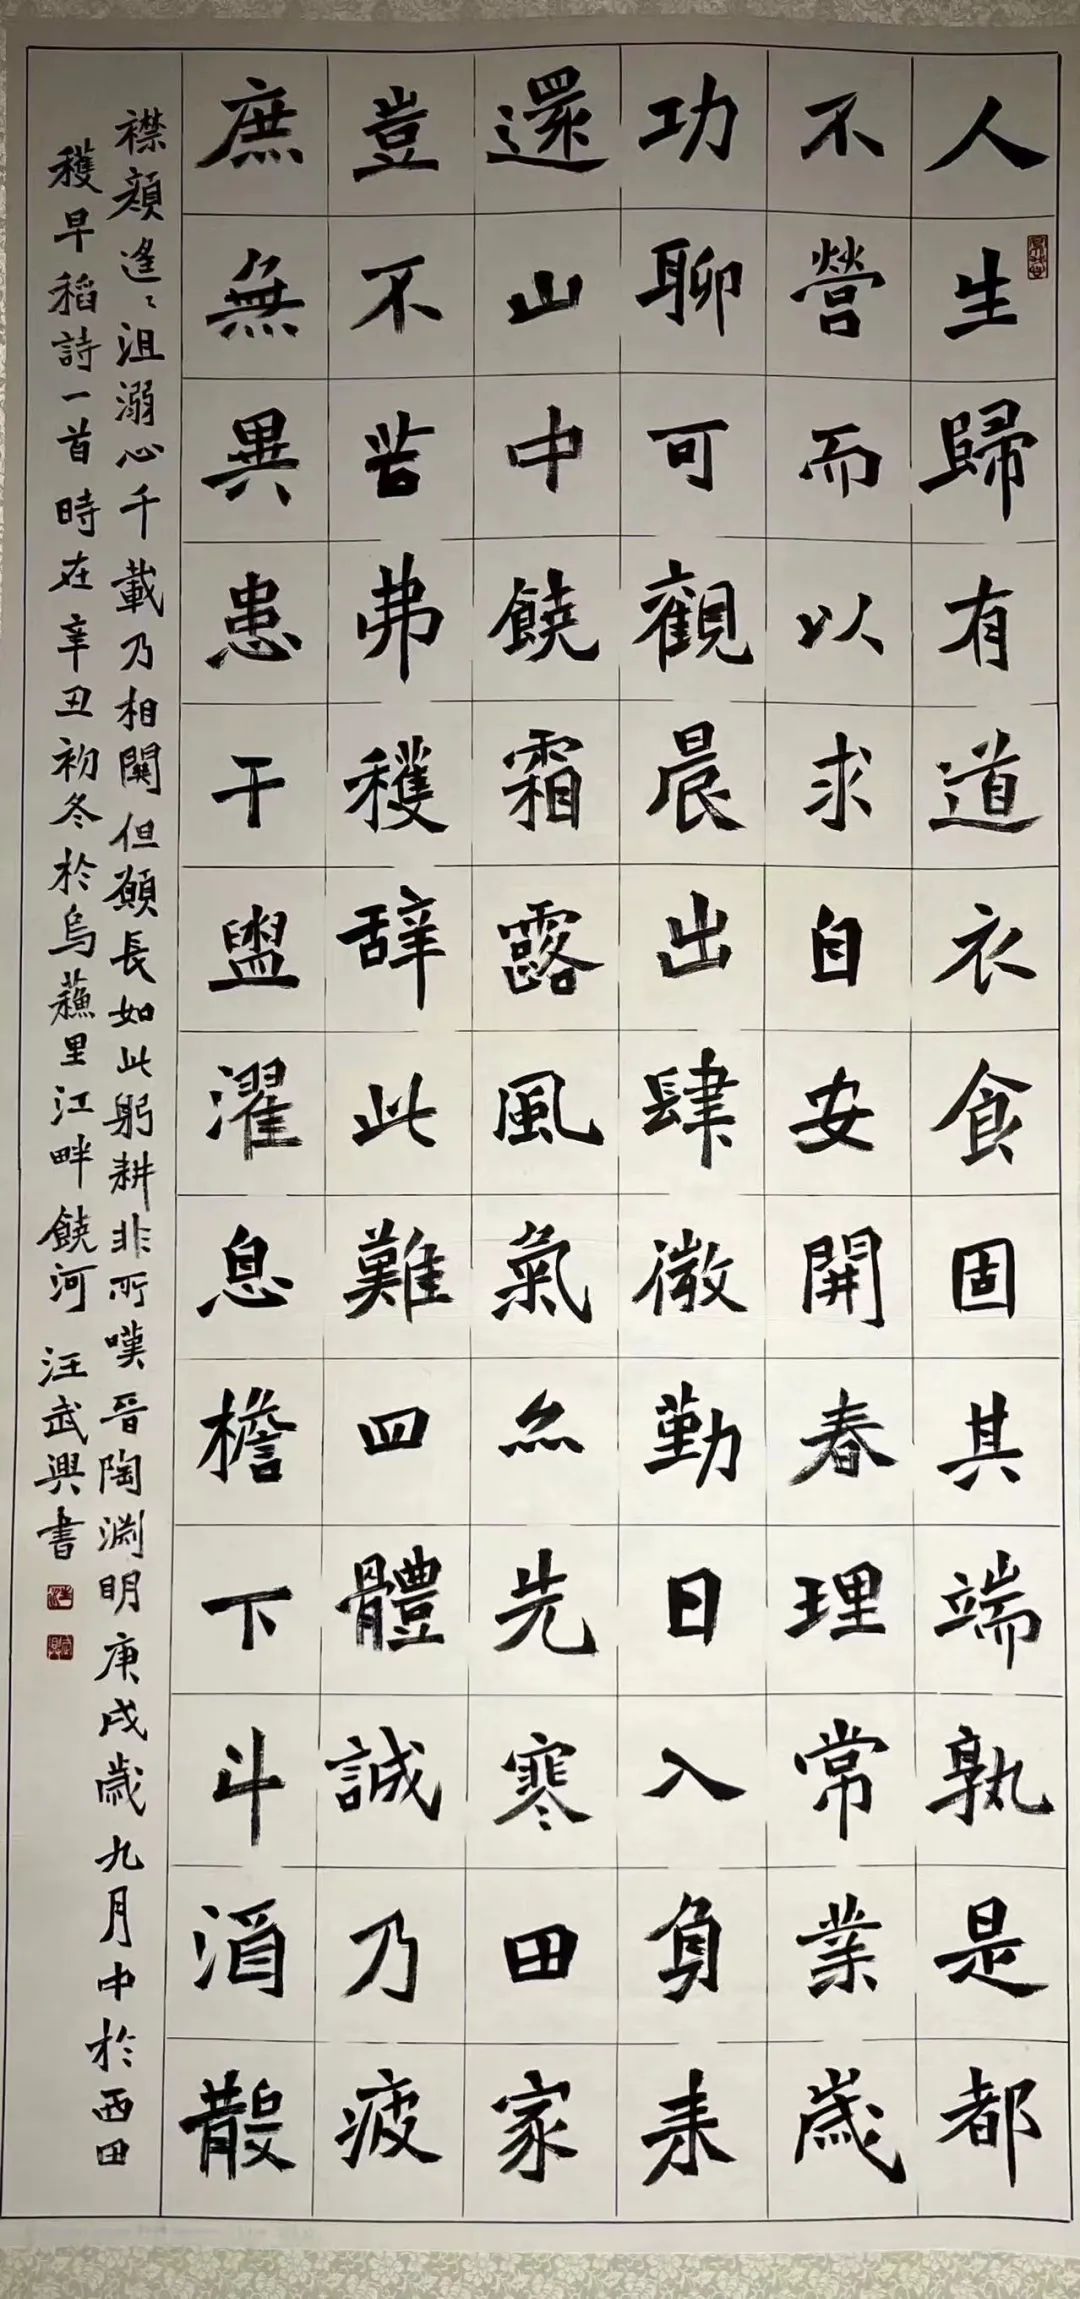 人生歸有道衣食固其端孰是都
不營而以求自安開春理常業歲
功聊可觀晨出肆微勤日入負耒
還山中饒霜露風氣亦先寒田家
豈不苦弗穫辭此難四體誠乃疲
庶無異患干盥濯息檐下斗酒散
襟顏遙〻沮溺心千載乃相關但願長如此躬耕非所嘆晉陶淵明庚戌歲九月中於西田
穫早稻詩一首時在辛丑初冬於烏蘓里江畔饒河汪武興書